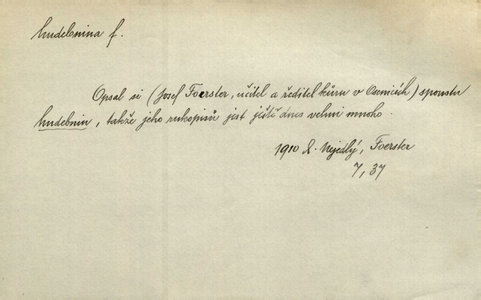 hudebnina f.
Opsal si (Josef Foerster, učitel a ředitel kůru v Osenicích) spoustu
hudebnin, takže jeho rukopisů jest ještě dnes velmi mnoho
1910 Z. Nejedlý, Foerster
7, 37